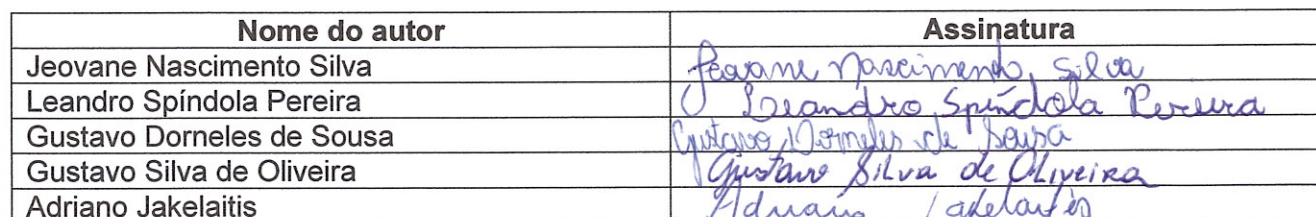 Nome do autor Assinatura
Jeovane Nascimento Silva Jeovane Nascimento Silva
Leandro Spíndola Pereira Leandro Spíndola Pereira
Gustavo Dorneles de Sousa Gustavo Dorneles de Sousa
Gustavo Silva de Oliveira Gustavo Silva de Oliveira
Adriano Jakelaitis Adriano Jakelaitis